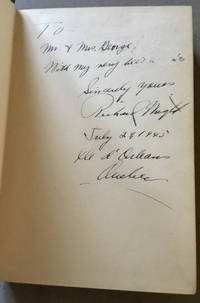 To
Mr. & Mrs. George,
With my very best
Sincerely yours,
Richard Wright
July 28 1945
Ile d'Orleans
Quebec